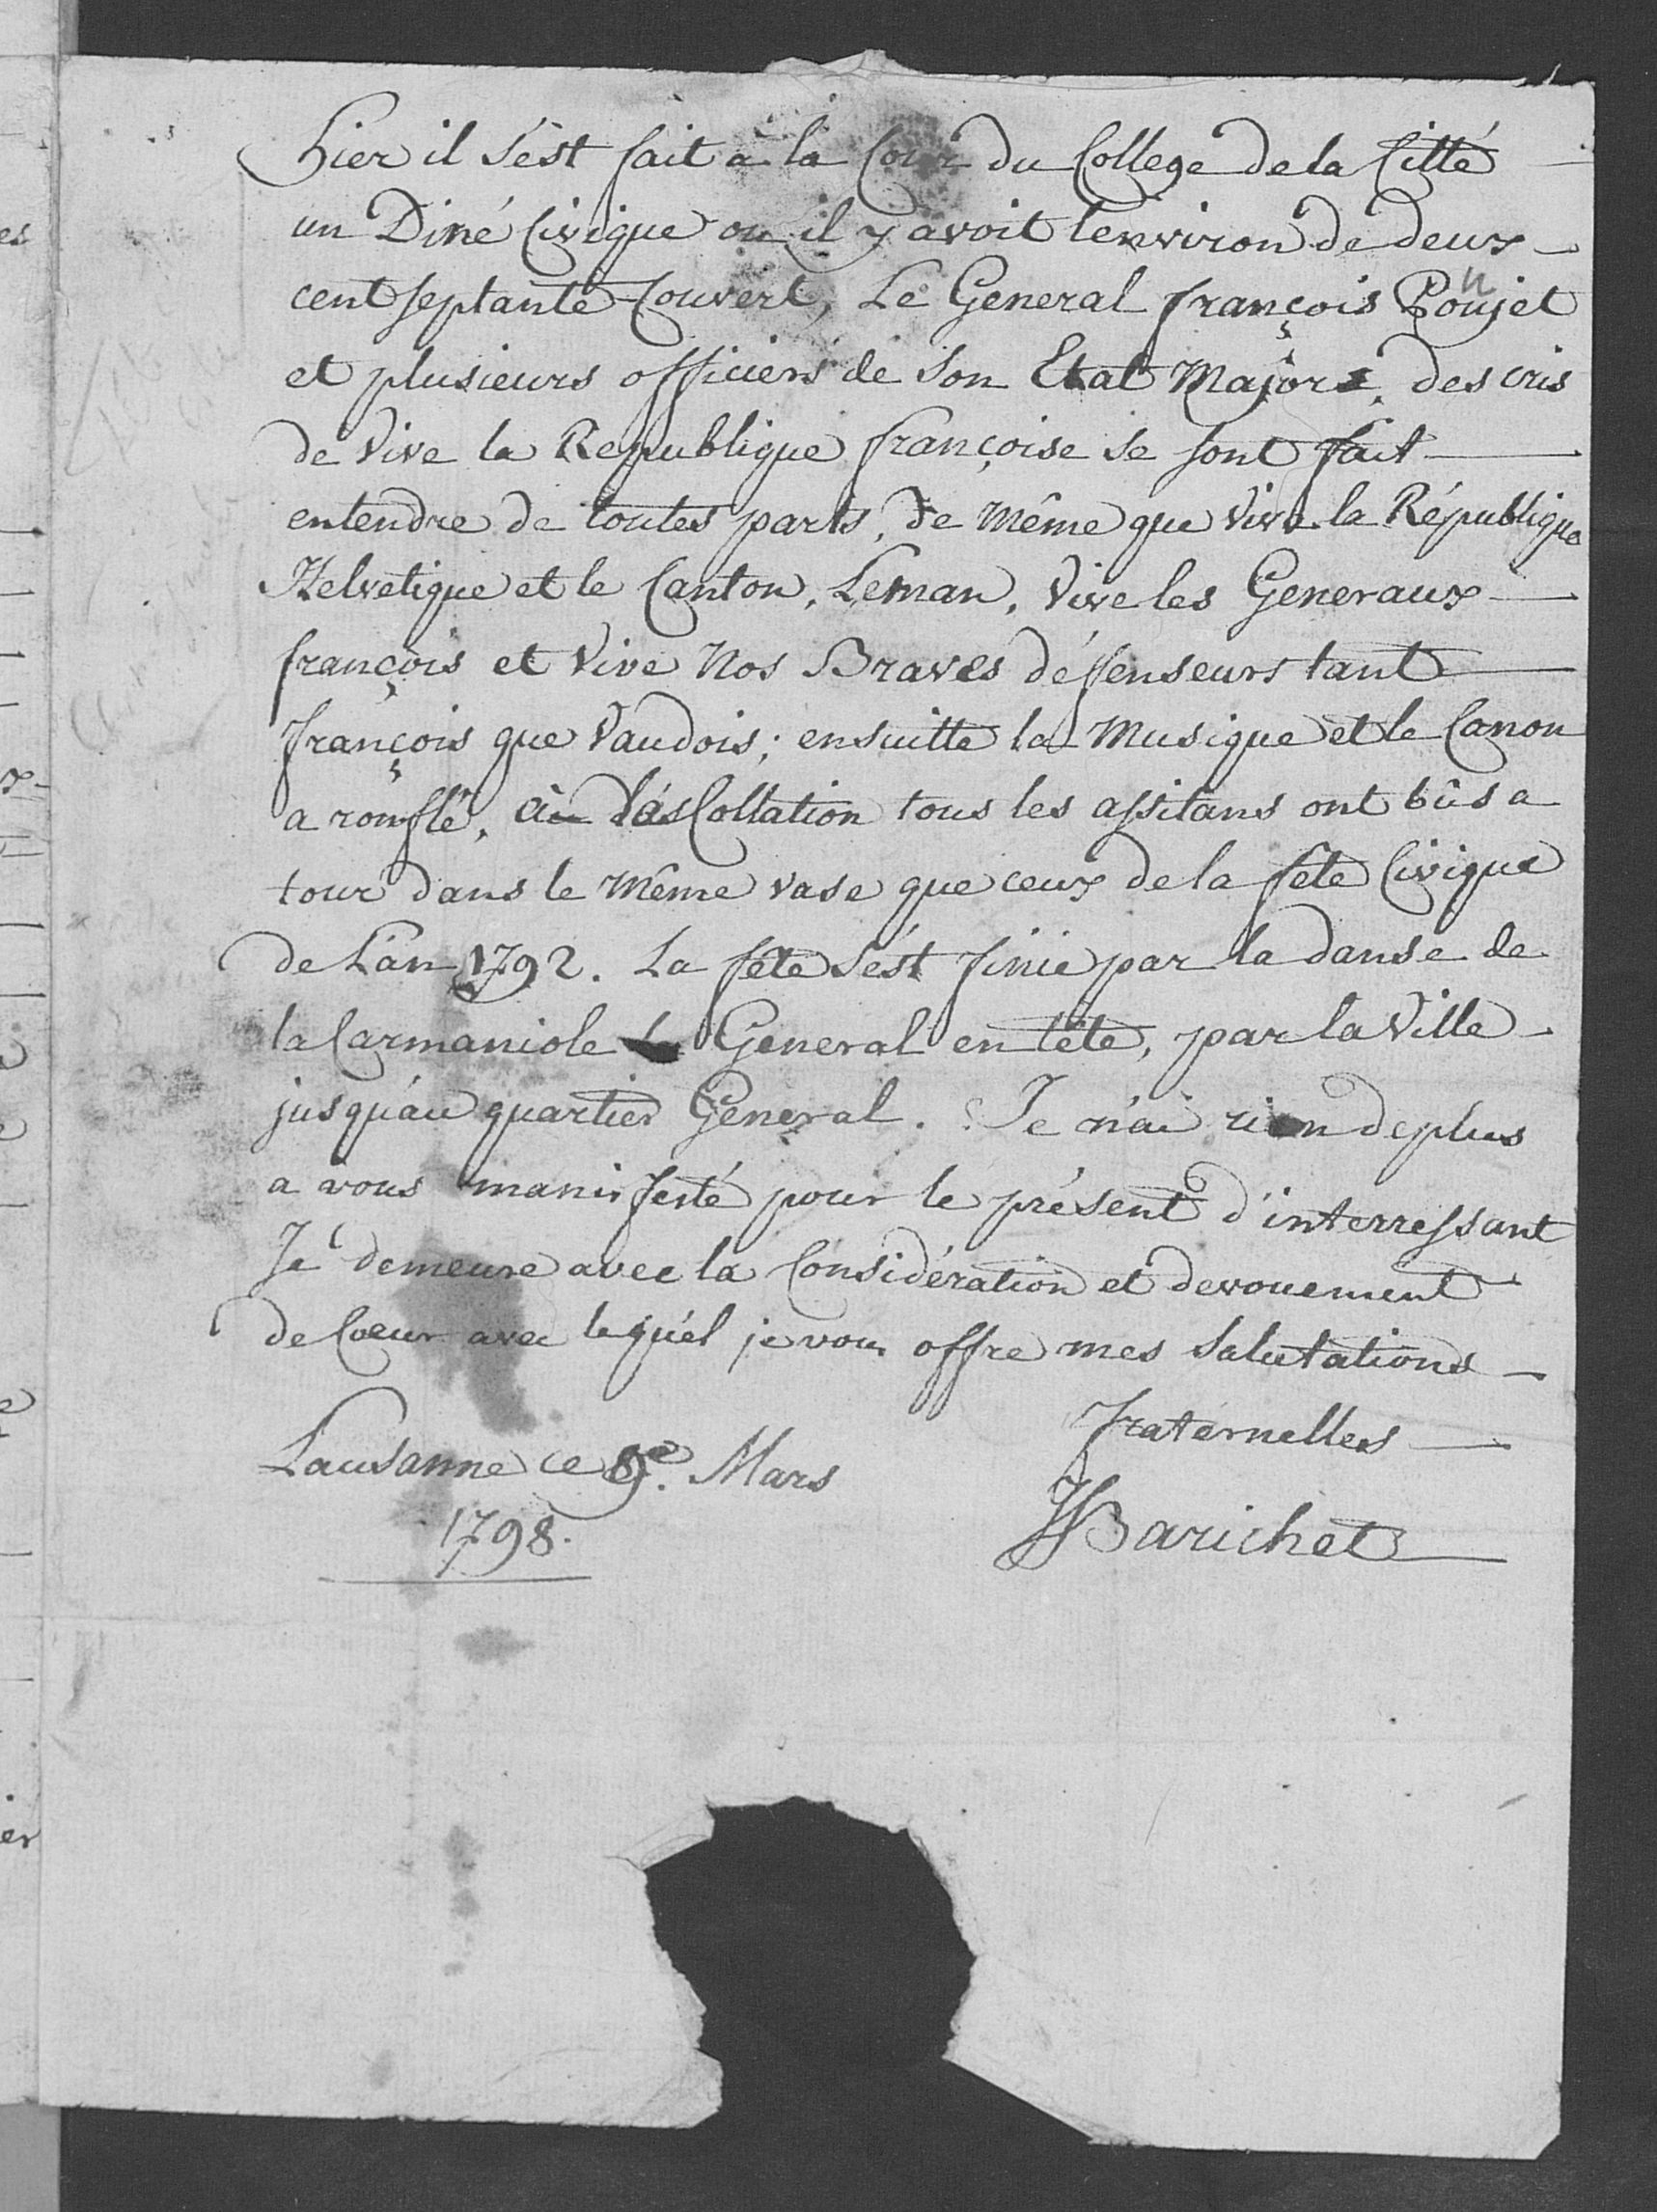 hier il s'ést fait a la Cour du College de la Citté
un Diné Civique ou il y avoit lenviron de deux
cent septante Couvert, Le General françois Poujet
et plusieurs officiers de Son Etat Major, des cris
de Vive la Republique françoise se sont fait
entendre de toutes parts, de même que Vive la République
Helvetique et le Canton, Leman, Vive les Generaux
françois et Vive Nos Braves défenseurs tant
françois que Vaudois; ensuitte la Musique et le Canon
a ronflé, a la Collation tous les assitans ont bûs a
tour dans le même vase que ceux de la fete Civique
de L'an 1792. La fete s'ést finie par la danse de
la Carmaniole le General en tête, par la Ville
jusqu'au quartier General. Je n'ai rien de plus
a vous manifesté pour le présent d'interressant
Je demeure avec la Considération et devouement
de Coeur avec lequel je vous offre mes Salutations
fraternelles
Lausanne ce 9e. Mars
1798.
Barichet